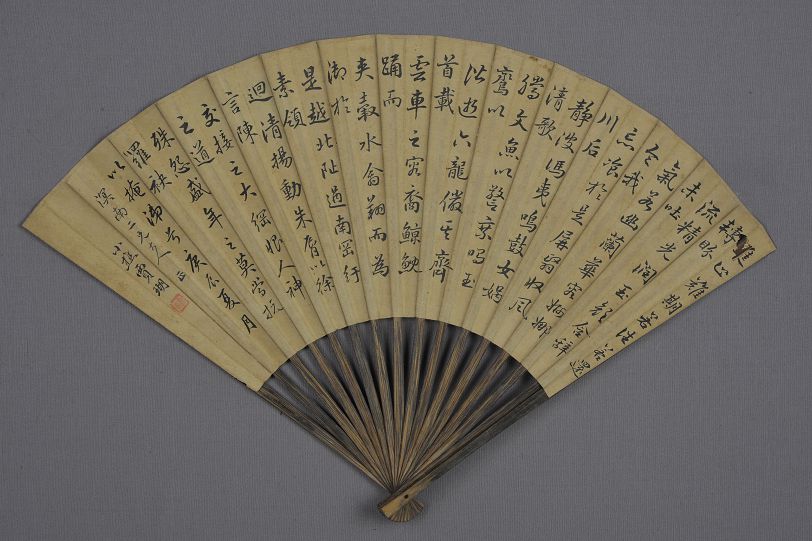 進止難期若往若還
轉眄
流精光潤玉顏含辭
未吐
氣若幽蘭華容婀娜
令我
忘飡於是屏翳收風
川后
靜波馮夷鳴鼓女媧
清歌
騰文魚以警乘鳴玉
鸞以
偕逝六龍儼其齊
首載
雲車之容裔鯨鯢
踊而
夾轂水禽翔而為
衛於
是越北沚過南罡紆
素領
迴清揚動朱唇以徐
言陳
交接之大綱恨人神
之道
殊怨盛年之莫當抗
羅袂
以掩涕兮 庚辰夏月
溟南二兄 正
小槎賈瑚